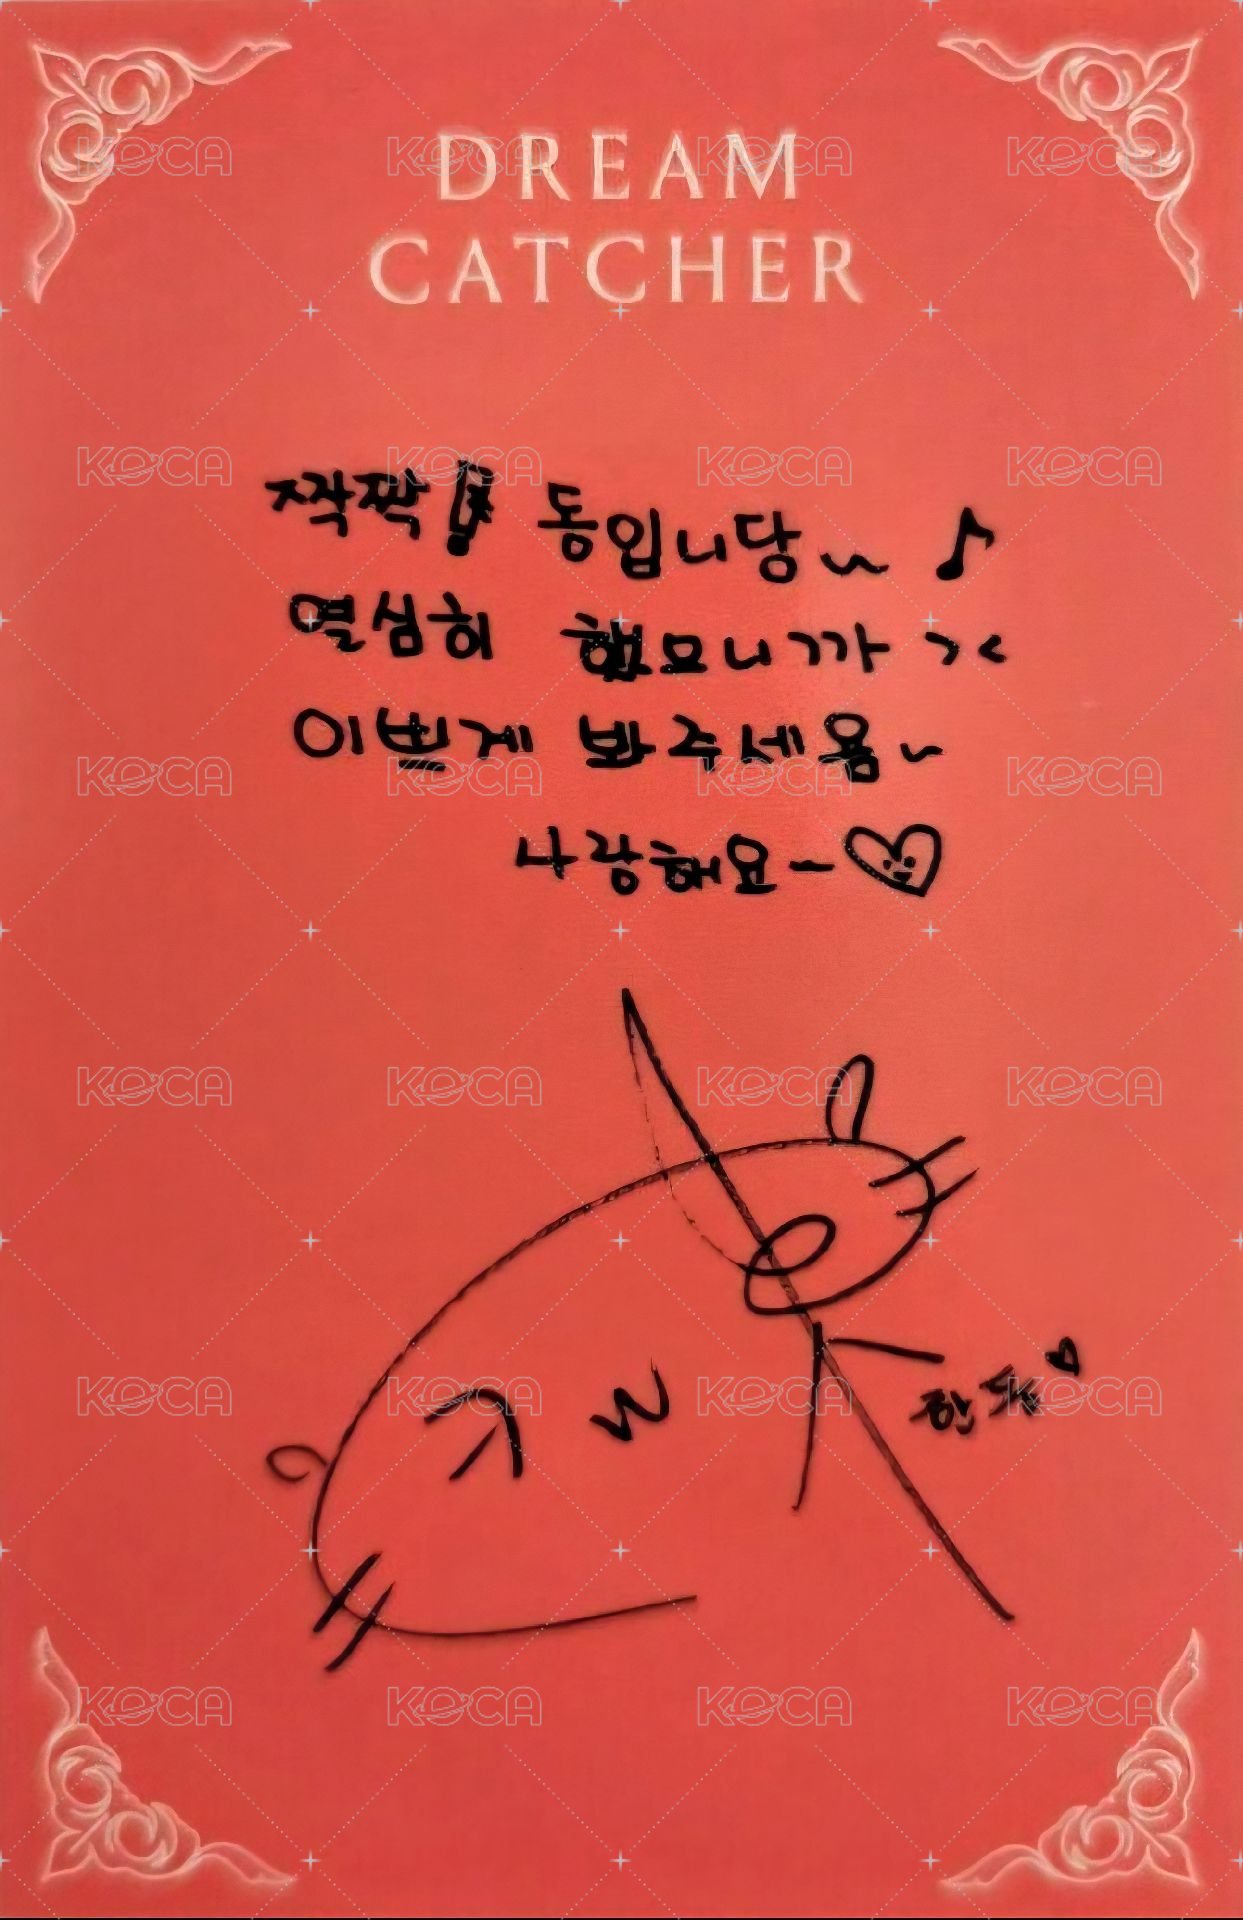 DREAM
CATCHER
짝짝! 동입니당~ ♪
열심히 했으니까 ><
이쁘게 봐주세용~
사랑해요~♡
한동♡
KOCA